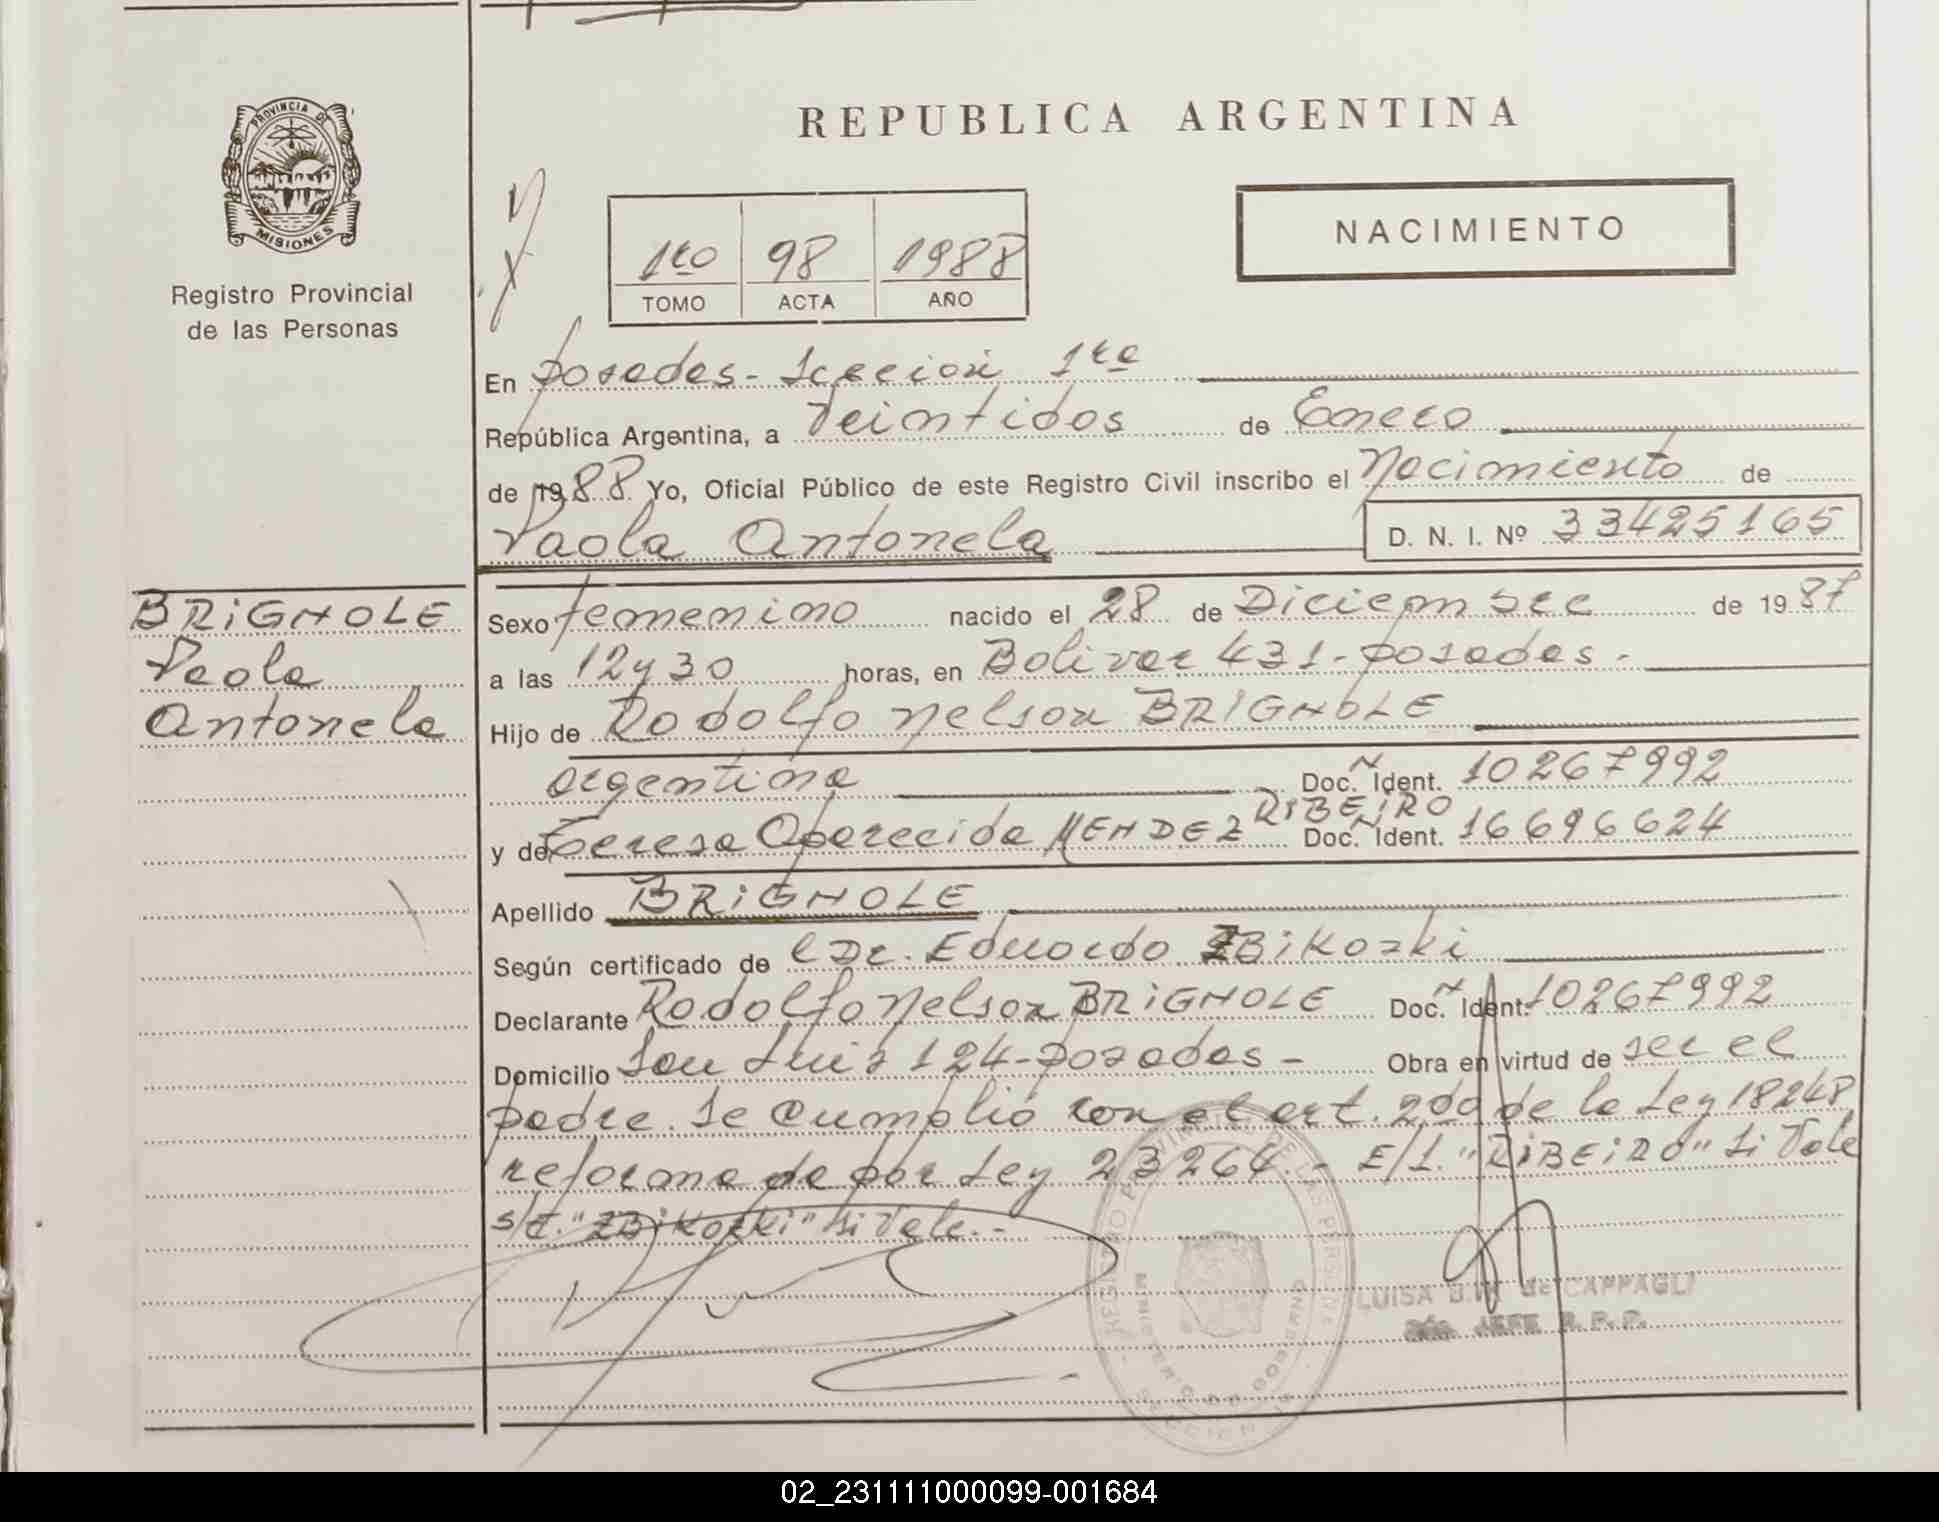 PROVINCIA DE
MISIONES
Registro Provincial
de las Personas
REPUBLICA ARGENTINA
NACIMIENTO
1ro 98 1988
TOMO ACTA AÑO
En Posadas - Sección 1ra
República Argentina, a Veintidos de Enero
de 1988 Yo, Oficial Público de este Registro Civil inscribo el Nacimiento de
Paola Antonela D. N. I. Nº 33425165
BRiGNOLE
Paola
Antonela
Sexo femenino nacido el 28 de Diciembre de 1987
a las 12 y 30 horas, en Bolivar 431 - Posadas -
Hijo de Rodolfo Nelson BRIGNOLE
argentina Doc. Ident. 10267992
RiBEiRO
y de Teresa Aparecida MENDEZ Doc. Ident. 16696624
Apellido BRiGNOLE
Según certificado de l Dr. Eduardo ZBiKozki
Declarante Rodolfo Nelson BRiGNOLE Doc. Ident. 10267992
Domicilio San Luis 124 - Posadas - Obra en virtud de ser el
padre. Se cumplió con el art. 2do de la Ley 18248
reformada por Ley 23264. - E/L. "RiBEiRO" Si Vale
S/E. "ZBiKozki" Si Vale. -
REGISTRO PROVINCIAL DE LAS PERSONAS
MINISTERIO DE GOBIERNO
LUISA B. de CAPPAGLI
JEFE R.P.P.
02_231111000099-001684